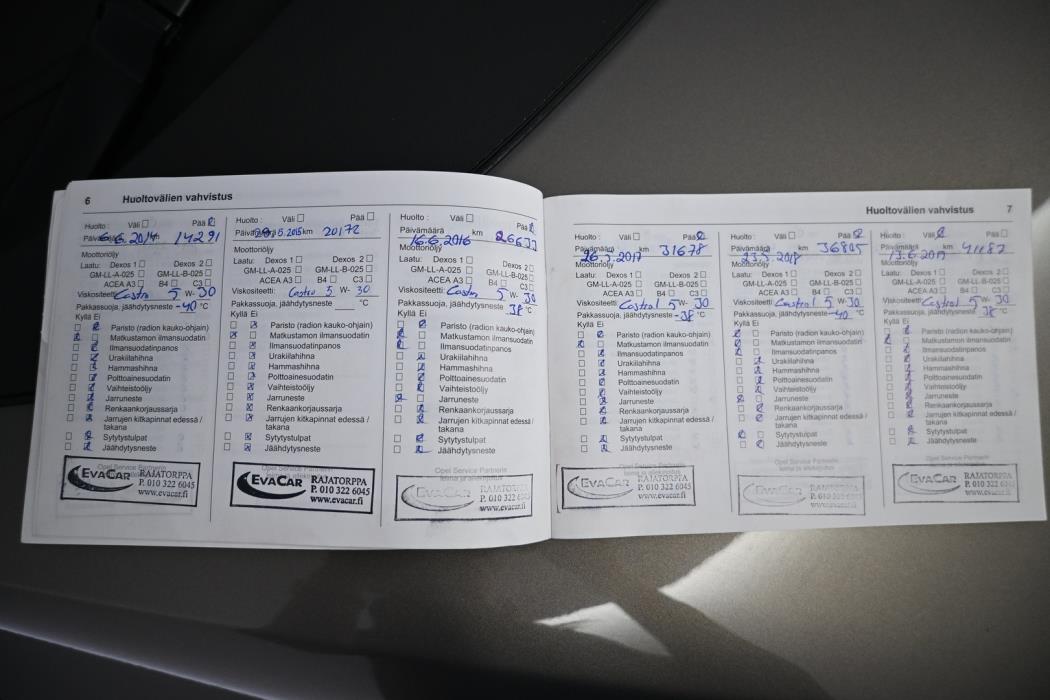 6 Huoltovälien vahvistus
Huolto : Väli Pää
Päivämäärä 6.6.2014 14291
Moottoriöljy
Laatu: Dexos 1 Dexos 2
GM-LL-A-025 GM-LL-B-025
ACEA A3 C3
Viskositeetti Castro 5 W- 30
Pakkassuoja, jäähdytysneste -40 °C
Kyllä Ei
Paristo (radion kauko-ohjain)
Matkustamon ilmansuodatin
Ilmansuodatinpanos
Urakiilahihna
Hammashihna
Polttoainesuodatin
Vaihteistoöljy
Jarruneste
Renkaankorjaussarja
Jarrujen kitkapinnat edessä /
takana
Sytytystulpat
Jäähdytysneste
EVACAR RAJATORPPA
P. 010 322 6045
www.evacar.fi
Huolto : Väli Pää
Päivämäärä 5.2015 km 20172
Moottoriöljy
Laatu: Dexos 1 Dexos 2
GM-LL-A-025 GM-LL-B-025
ACEA A3 B4 C3
Viskositeetti Castro 5 W- 30
Pakkassuoja, jäähdytysneste °C
Kyllä Ei
Paristo (radion kauko-ohjain)
Matkustamon ilmansuodatin
Ilmansuodatinpanos
Urakiilahihna
Hammashihna
Polttoainesuodatin
Vaihteistoöljy
Jarruneste
Renkaankorjaussarja
Jarrujen kitkapinnat edessä /
takana
Sytytystulpat
Jäähdytysneste
Opel Service Partnerin
leima ja allekirjoitus
EVACAR RAJATORPPA
P. 010 322 6045
www.evacar.fi
Huolto : Väli Pää
Päivämäärä km
16.6.2016
Moottoriöljy
Laatu: Dexos 1 Dexos 2
GM-LL-A-025 GM-LL-B-025
ACEA A3 B4 C3
Viskositeetti Castro 5 W- 30
Pakkassuoja, jäähdytysneste 38 °C
Kyllä Ei
Paristo (radion kauko-ohjain)
Matkustamon ilmansuodatin
Ilmansuodatinpanos
Urakiilahihna
Hammashihna
Polttoainesuodatin
Vaihteistoöljy
Jarruneste
Renkaankorjaussarja
Jarrujen kitkapinnat edessä /
takana
Sytytystulpat
Jäähdytysneste
Opel Service Partnerin
leima ja allekirjoitus
EVACAR RAJATORPPA
P. 010 322 6045
www.evacar.fi
Huoltovälien vahvistus 7
Huolto : Väli Pää
Päivämäärä km 31678
Moottoriöljy
Laatu: Dexos 1 Dexos 2
GM-LL-A-025 GM-LL-B-025
ACEA A3 B4 C3
Viskositeetti Castrol 5 W- 30
Pakkassuoja, jäähdytysneste -38 °C
Kyllä Ei
Paristo (radion kauko-ohjain)
Matkustamon ilmansuodatin
Ilmansuodatinpanos
Urakiilahihna
Hammashihna
Polttoainesuodatin
Vaihteistoöljy
Jarruneste
Renkaankorjaussarja
Jarrujen kitkapinnat edessä /
takana
Sytytystulpat
Jäähdytysneste
Opel Service Partnerin
leima ja allekirjoitus
EVACAR RAJATORPPA
P. 010 322 6045
www.evacar.fi
Huolto : Väli Pää
Päivämäärä km 36805
23.5.2018
Moottoriöljy
Laatu: Dexos 1 Dexos 2
GM-LL-A-025 GM-LL-B-025
ACEA A3 B4 C3
Viskositeetti Castrol 5 W- 30
Pakkassuoja, jäähdytysneste -40 °C
Kyllä Ei
Paristo (radion kauko-ohjain)
Matkustamon ilmansuodatin
Ilmansuodatinpanos
Urakiilahihna
Hammashihna
Polttoainesuodatin
Vaihteistoöljy
Jarruneste
Renkaankorjaussarja
Jarrujen kitkapinnat edessä /
takana
Sytytystulpat
Jäähdytysneste
EVACAR RAJATORPPA
P. 010 322 6045
www.evacar.fi
Huolto : Väli Pää
Päivämäärä km 41182
13.6.2019
Moottoriöljy
Laatu: Dexos 1 Dexos 2
GM-LL-A-025 GM-LL-B-025
ACEA A3 B4 C3
Viskositeetti Castrol 5 W- 30
Pakkassuoja, jäähdytysneste 38 °C
Kyllä Ei
Paristo (radion kauko-ohjain)
Matkustamon ilmansuodatin
Ilmansuodatinpanos
Urakiilahihna
Hammashihna
Polttoainesuodatin
Vaihteistoöljy
Jarruneste
Renkaankorjaussarja
Jarrujen kitkapinnat edessä /
takana
Sytytystulpat
Jäähdytysneste
Opel Service Partnerin
leima ja allekirjoitus
EVACAR RAJATORPPA
P. 010 322 6045
www.evacar.fi